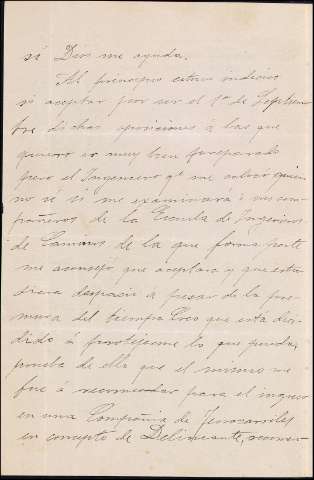 si Dios me ayuda.
Al principio estuve indeciso
si aceptar por ser el 1º de Septiem
bre dichas oposiciones á las que
quiero ir muy bien preparado
pero el Ingeniero qe me colocó quien
no sé si me examinará ó sus com
pañeros de la Escuela de Ingenieros
de Caminos de la que forma parte
me aconsejó que aceptara y que estu
diara despacio á pesar de la pre
mura del tiempo. Creo que está deci
dido á protejerme lo que pueda,
prueba de ello que el mismo me
fué á recomendar para el ingreso
en una Compañia de Ferrocarriles
en concepto de Delineante,